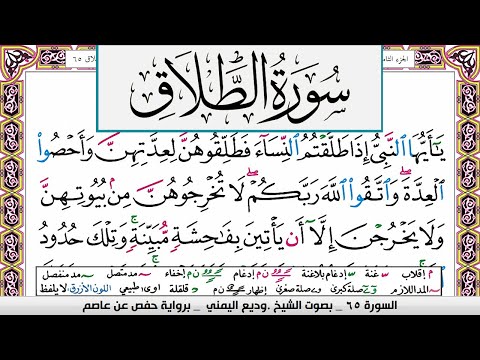 الجزء الثامن
سُورَةُ الطَّلَاقِ
يَٰٓأَيُّهَا ٱلنَّبِيُّ إِذَا طَلَّقۡتُمُ ٱلنِّسَآءَ فَطَلِّقُوهُنَّ لِعِدَّتِهِنَّ وَأَحۡصُواْ
ٱلۡعِدَّةَۖ وَٱتَّقُواْ ٱللَّهَ رَبَّكُمۡۖ لَا تُخۡرِجُوهُنَّ مِنۢ بُيُوتِهِنَّ
وَلَا يَخۡرُجۡنَ إِلَّآ أَن يَأۡتِينَ بِفَٰحِشَةٖ مُّبَيِّنَةٖۚ وَتِلۡكَ حُدُودُ
إقلاب غنة إدغام بلاغنة إدغام إخفاء مد متصل مد منفصل
المد اللازم صلة كبرى صلة صغرى إظهار قلقلة اوى طبيعي اللون الأزرق لا يلفظ
السورة ٦٥ _ بصوت الشيخ .وديع اليمني _ برواية حفص عن عاصم